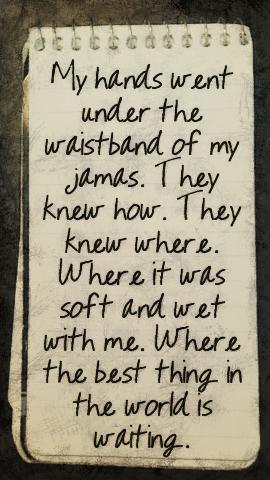 My hands went
under the
waistband of my
jamas. They
knew how. They
knew where.
Where it was
soft and wet
with me. Where
the best thing in
the world is
waiting.